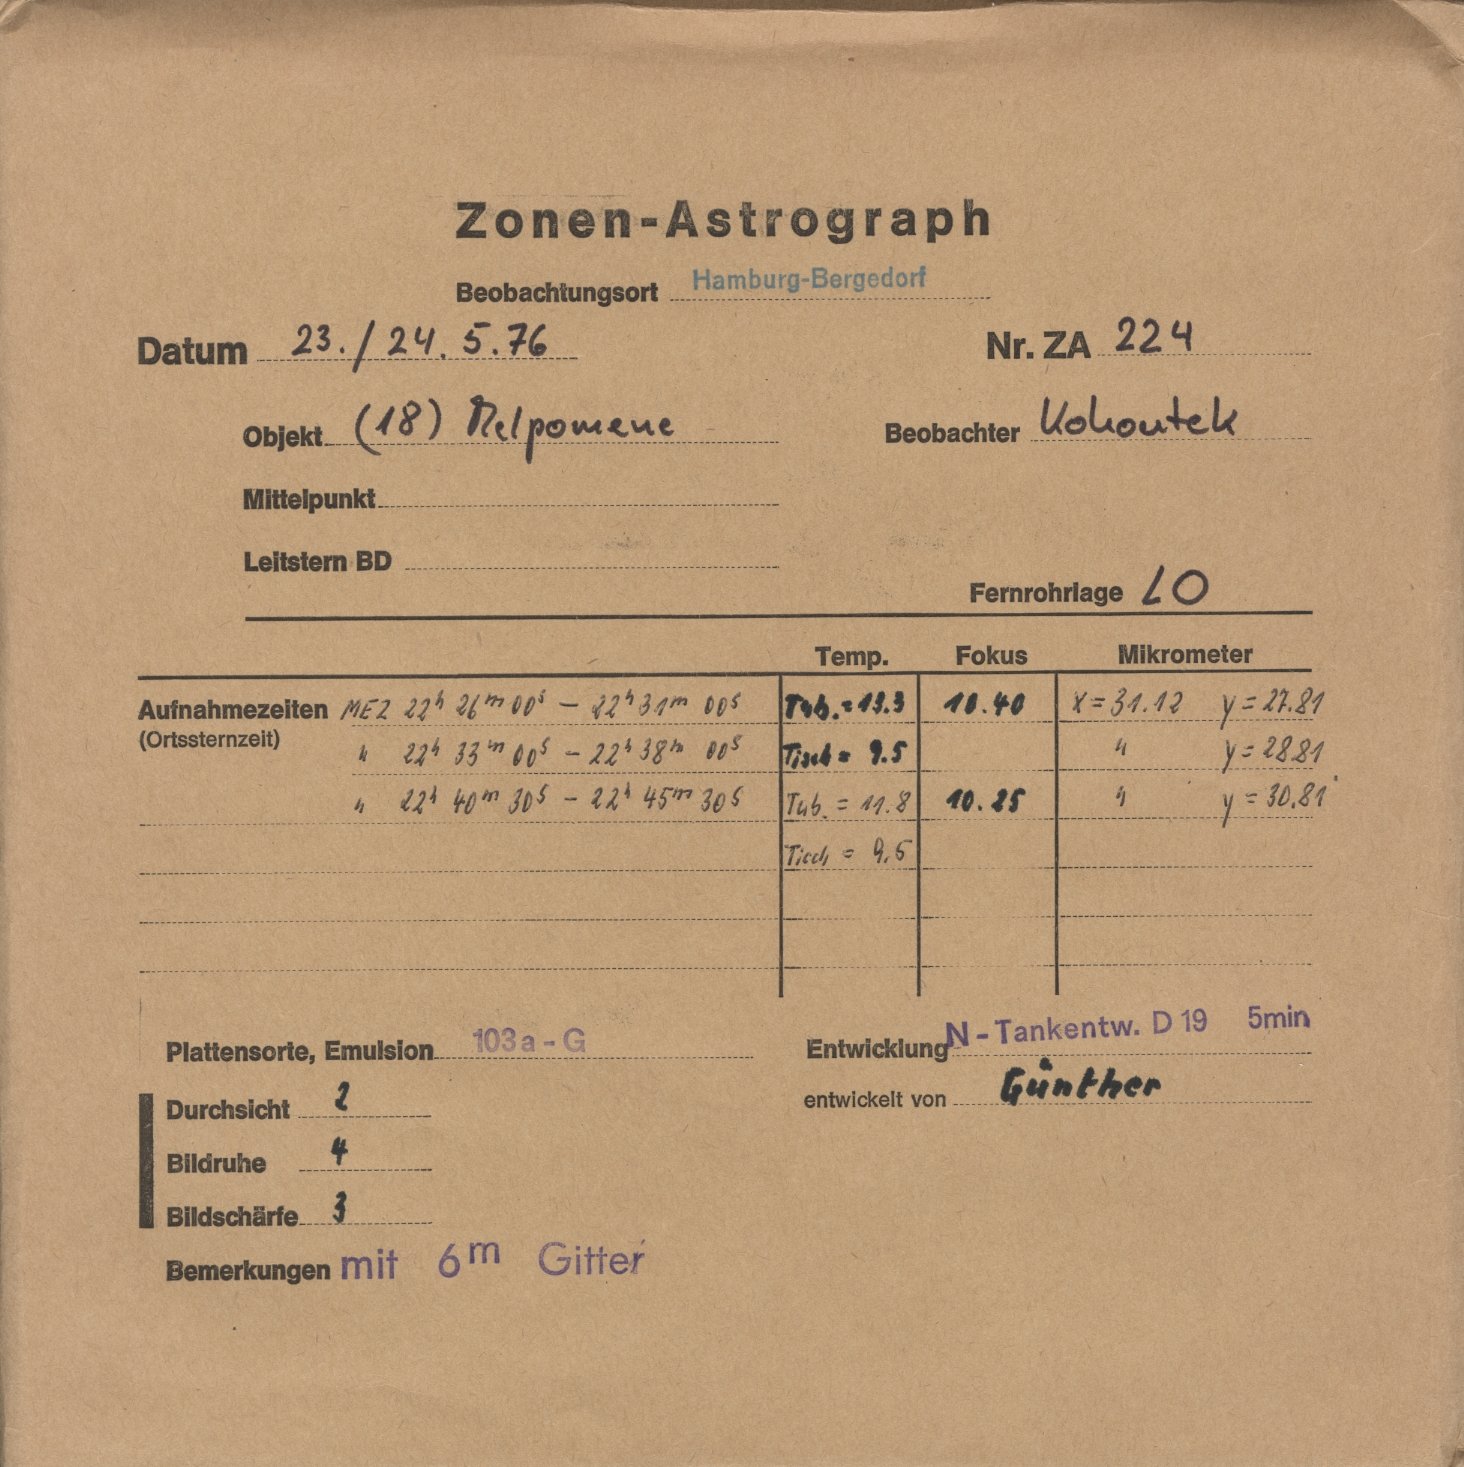 Zonen-Astrograph
Beobachtungsort Hamburg-Bergedorf
Datum 23./24.5.76 Nr. ZA 224
Objekt (18) Melpomene Beobachter Kohoutek
Mittelpunkt
Leitstern BD
Fernrohrlage LO
Temp. Fokus Mikrometer
Aufnahmezeiten MEZ 22h 26m 00s – 22h 31m 00s Tub. = 13.3 10.40 x = 31.12 y = 27.81
(Ortssternzeit) " 22h 33m 00s – 22h 38m 00s Tisch = 9.5 " y = 28.81
" 22h 40m 30s – 22h 45m 30s Tub. = 11.8 10.25 " y = 30.81
Tisch = 9.5
Plattensorte, Emulsion 103a-G Entwicklung N-Tankentw. D 19 5min
Durchsicht 2 entwickelt von Günther
Bildruhe 4
Bildschärfe 3
Bemerkungen mit 6m Gitter